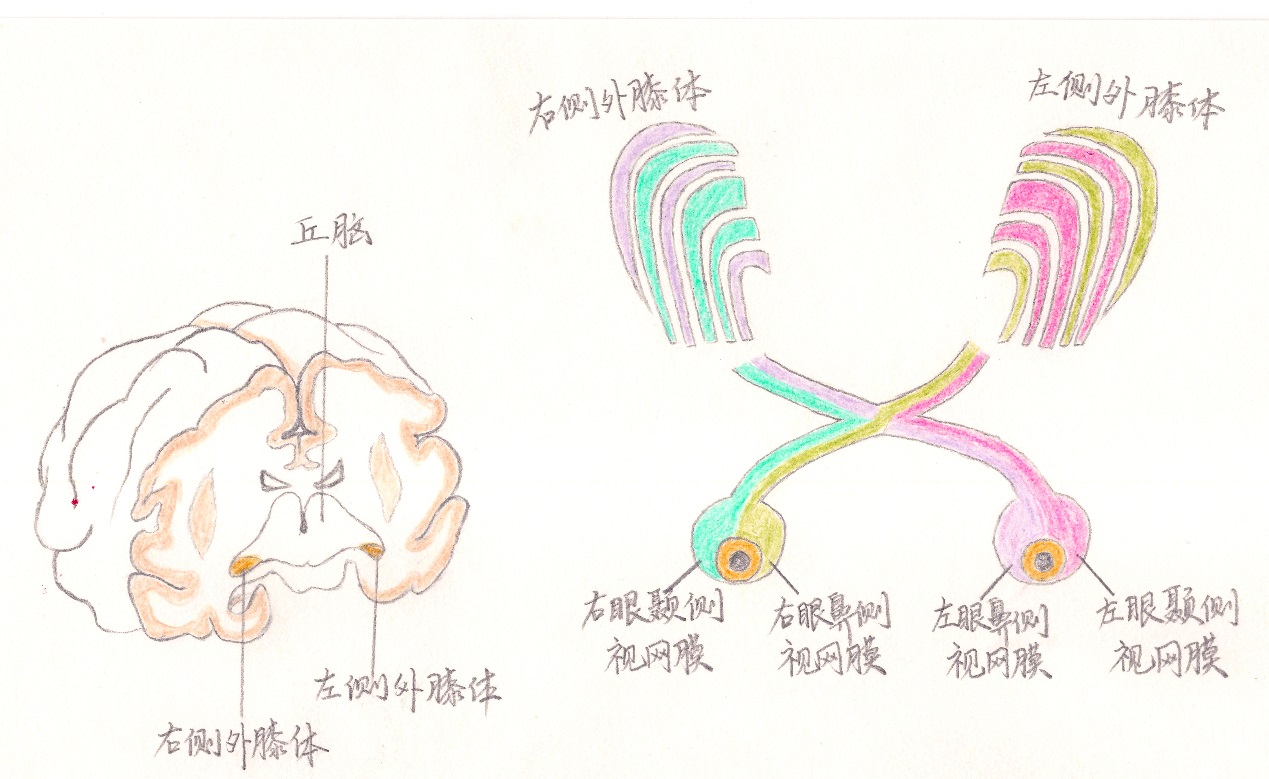 丘脑
左侧外膝体
右侧外膝体
右侧外膝体
左侧外膝体
右眼颞侧
视网膜
右眼鼻侧
视网膜
左眼鼻侧
视网膜
左眼颞侧
视网膜